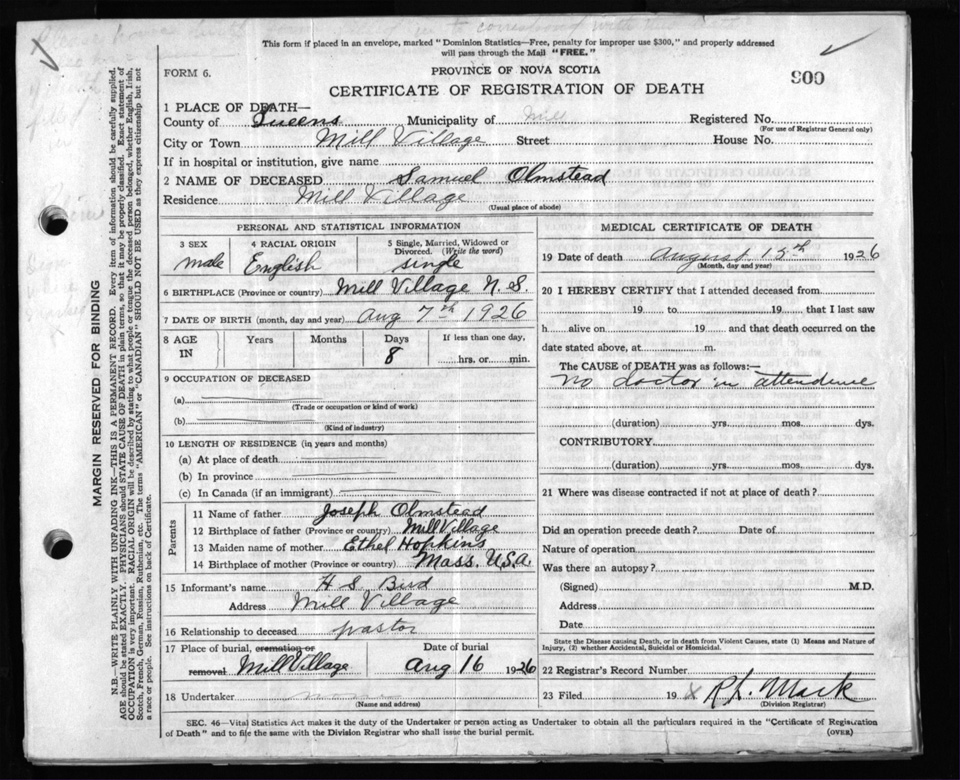 This form if placed in an envelope, marked "Dominion Statistics—Free, penalty for improper use $300," and properly addressed
will pass through the Mail "FREE."
FORM 6.
PROVINCE OF NOVA SCOTIA
900
CERTIFICATE OF REGISTRATION OF DEATH
1 PLACE OF DEATH—
County of Queens Municipality of Mill Registered No.
(For use of Registrar General only)
City or Town Mill Village Street House No.
If in hospital or institution, give name
2 NAME OF DECEASED Samuel Olmstead
Residence Mill Village
(Usual place of abode)
PERSONAL AND STATISTICAL INFORMATION
3 SEX 4 RACIAL ORIGIN 5 Single, Married, Widowed or
Divorced. (Write the word)
male English single
6 BIRTHPLACE (Province or country) Mill Village N. S.
7 DATE OF BIRTH (month, day and year) Aug 7th 1926
8 AGE IN Years Months Days If less than one day,
8 hrs. or min.
9 OCCUPATION OF DECEASED
(a)
(Trade or occupation or kind of work)
(b)
(Kind of industry)
10 LENGTH OF RESIDENCE (in years and months)
(a) At place of death
(b) In province
(c) In Canada (if an immigrant)
Parents
11 Name of father Joseph Olmstead
12 Birthplace of father (Province or country) Mill Village
13 Maiden name of mother Ethel Hopkins
14 Birthplace of mother (Province or country) Mass. U.S.A.
15 Informant's name H. S. Bird
Address Mill Village
16 Relationship to deceased pastor
17 Place of burial, cremation or Date of burial
removal Mill Village Aug 16 1926
18 Undertaker
(Name and address)
MEDICAL CERTIFICATE OF DEATH
19 Date of death August 15th 1926
(Month, day and year)
20 I HEREBY CERTIFY that I attended deceased from
19 to 19 , that I last saw
h alive on 19 and that death occurred on the
date stated above, at m.
The CAUSE of DEATH was as follows:—
No doctor in attendence
(duration) yrs. mos. dys.
CONTRIBUTORY
(duration) yrs. mos. dys.
21 Where was disease contracted if not at place of death?
Did an operation precede death? Date of
Nature of operation
Was there an autopsy?
(Signed) M.D.
Address
Date
State the Disease causing Death, or in death from Violent Causes, state (1) Means and Nature of
Injury, (2) whether Accidental, Suicidal or Homicidal.
22 Registrar's Record Number
23 Filed 19 R. L. Mack
(Division Registrar)
SEC. 46—Vital Statistics Act makes it the duty of the Undertaker or person acting as Undertaker to obtain all the particulars required in the "Certificate of Registration
of Death" and to file the same with the Division Registrar who shall issue the burial permit.
(OVER)
MARGIN RESERVED FOR BINDING
N.B.—WRITE PLAINLY WITH UNFADING INK—THIS IS A PERMANENT RECORD. Every item of information should be carefully supplied.
AGE should be stated EXACTLY. PHYSICIANS should STATE CAUSE OF DEATH in plain terms, so that it may be properly classified. Exact statement of
OCCUPATION is very important. RACIAL ORIGIN will be described by stating to what people or tongue the deceased person belonged, whether English, Irish,
Scotch, French, German, Russian, Ruthenian, etc. The terms "AMERICAN" or "CANADIAN" SHOULD NOT BE USED as they express citizenship but not
a race or people. See instructions on back of Certificate.